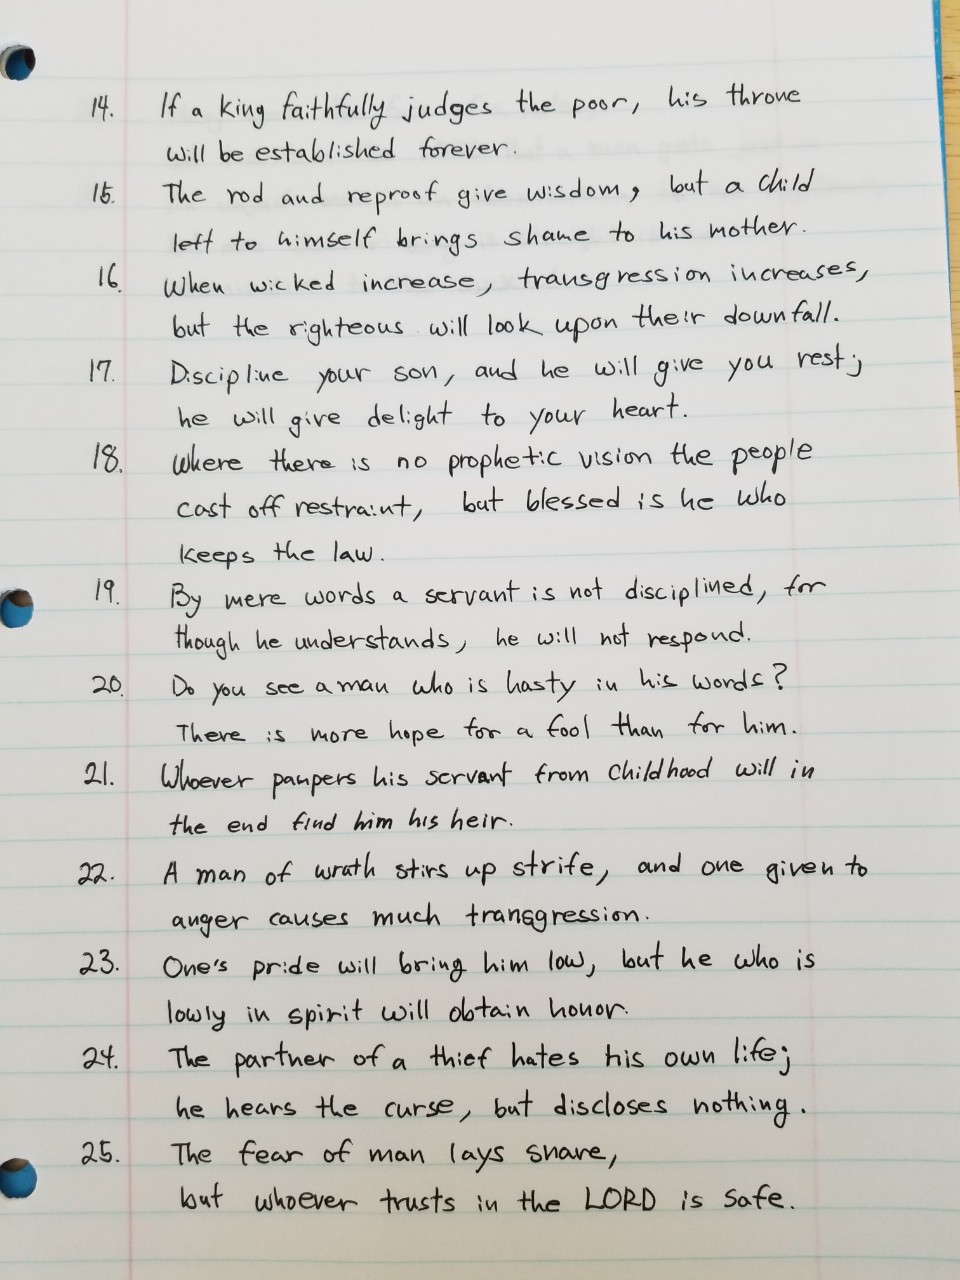 14. If a king faithfully judges the poor, his throne
will be established forever.
15. The rod and reproof give wisdom, but a child
left to himself brings shame to his mother.
16. When wicked increase, transgression increases,
but the righteous will look upon their downfall.
17. Discipline your son, and he will give you rest;
he will give delight to your heart.
18. Where there is no prophetic vision the people
cast off restraint, but blessed is he who
keeps the law.
19. By mere words a servant is not disciplined, for
though he understands, he will not respond.
20. Do you see a man who is hasty in his words?
There is more hope for a fool than for him.
21. Whoever pampers his servant from childhood will in
the end find him his heir.
22. A man of wrath stirs up strife, and one given to
anger causes much transgression.
23. One's pride will bring him low, but he who is
lowly in spirit will obtain honor.
24. The partner of a thief hates his own life;
he hears the curse, but discloses nothing.
25. The fear of man lays snare,
but whoever trusts in the LORD is safe.